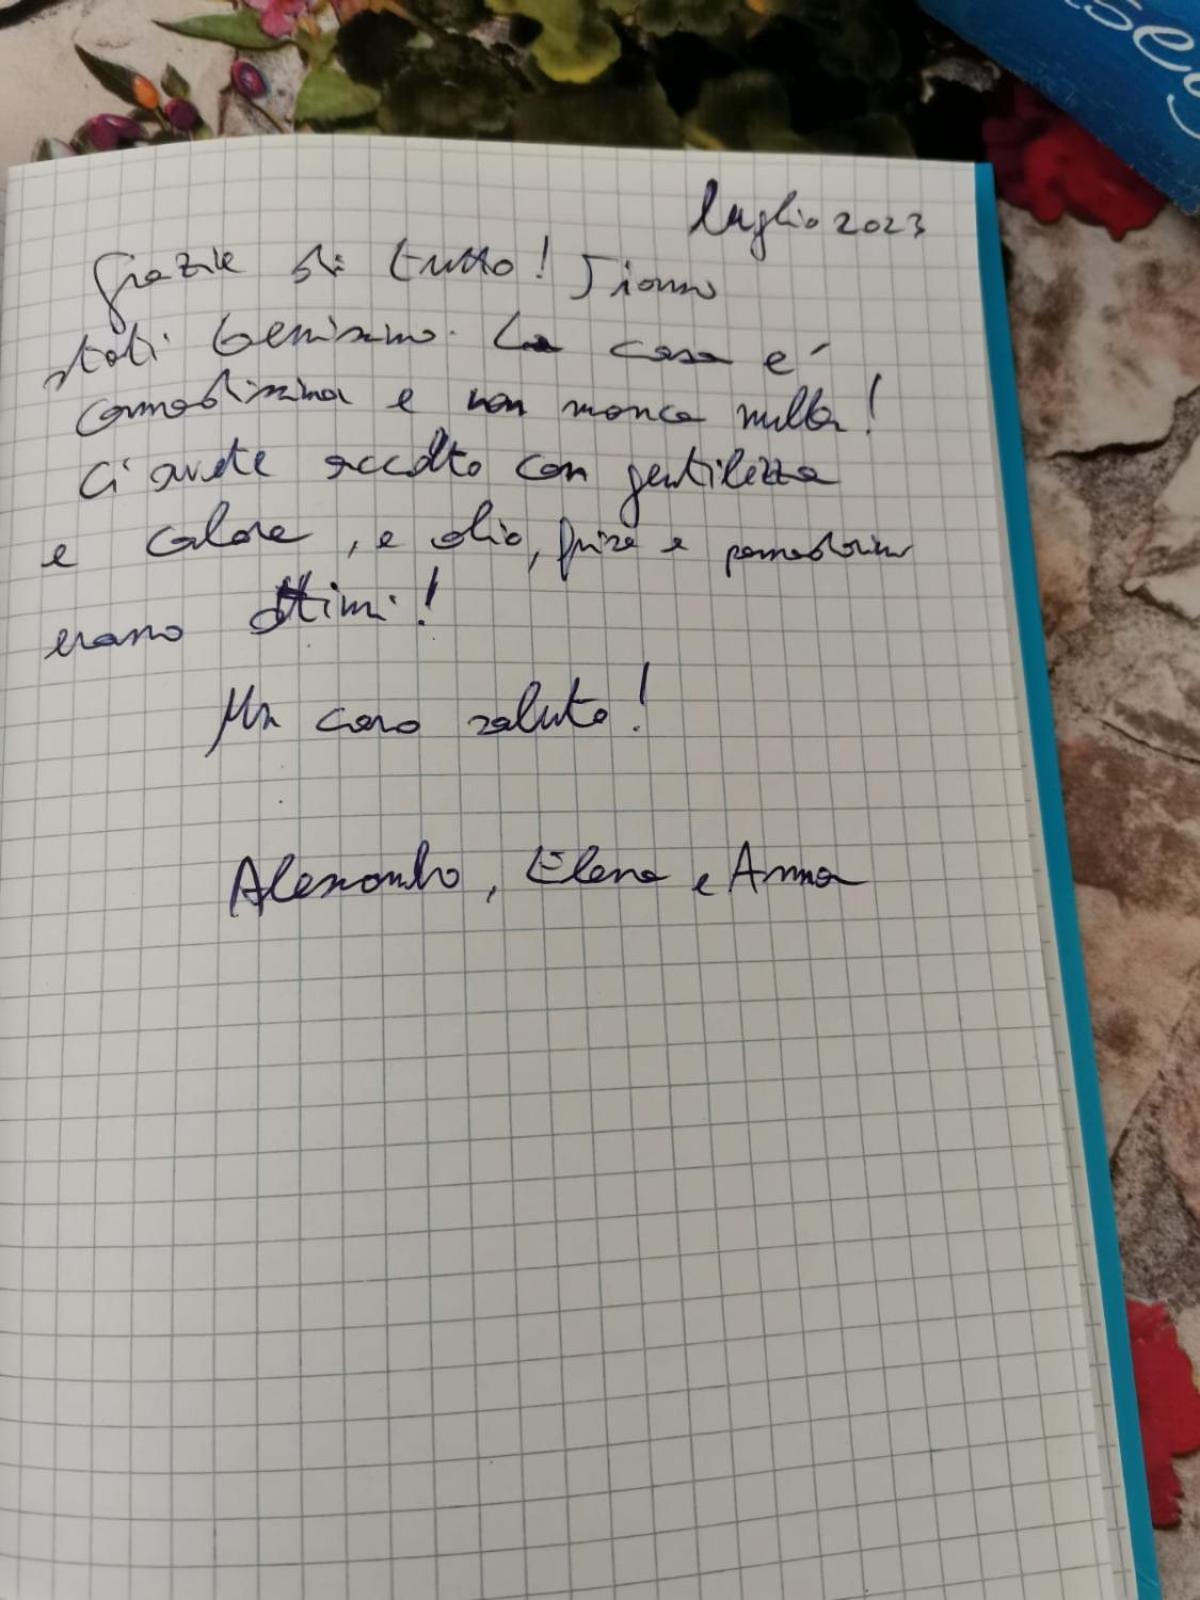 luglio 2023
Grazie di tutto! Siamo
stati benissimo. La casa è
comodissima e non manca nulla!
Ci avete accolto con gentilezza
e calore, e olio, frise e pomodorini
erano ottimi!
Un caro saluto!
Alessandro, Elena e Anna